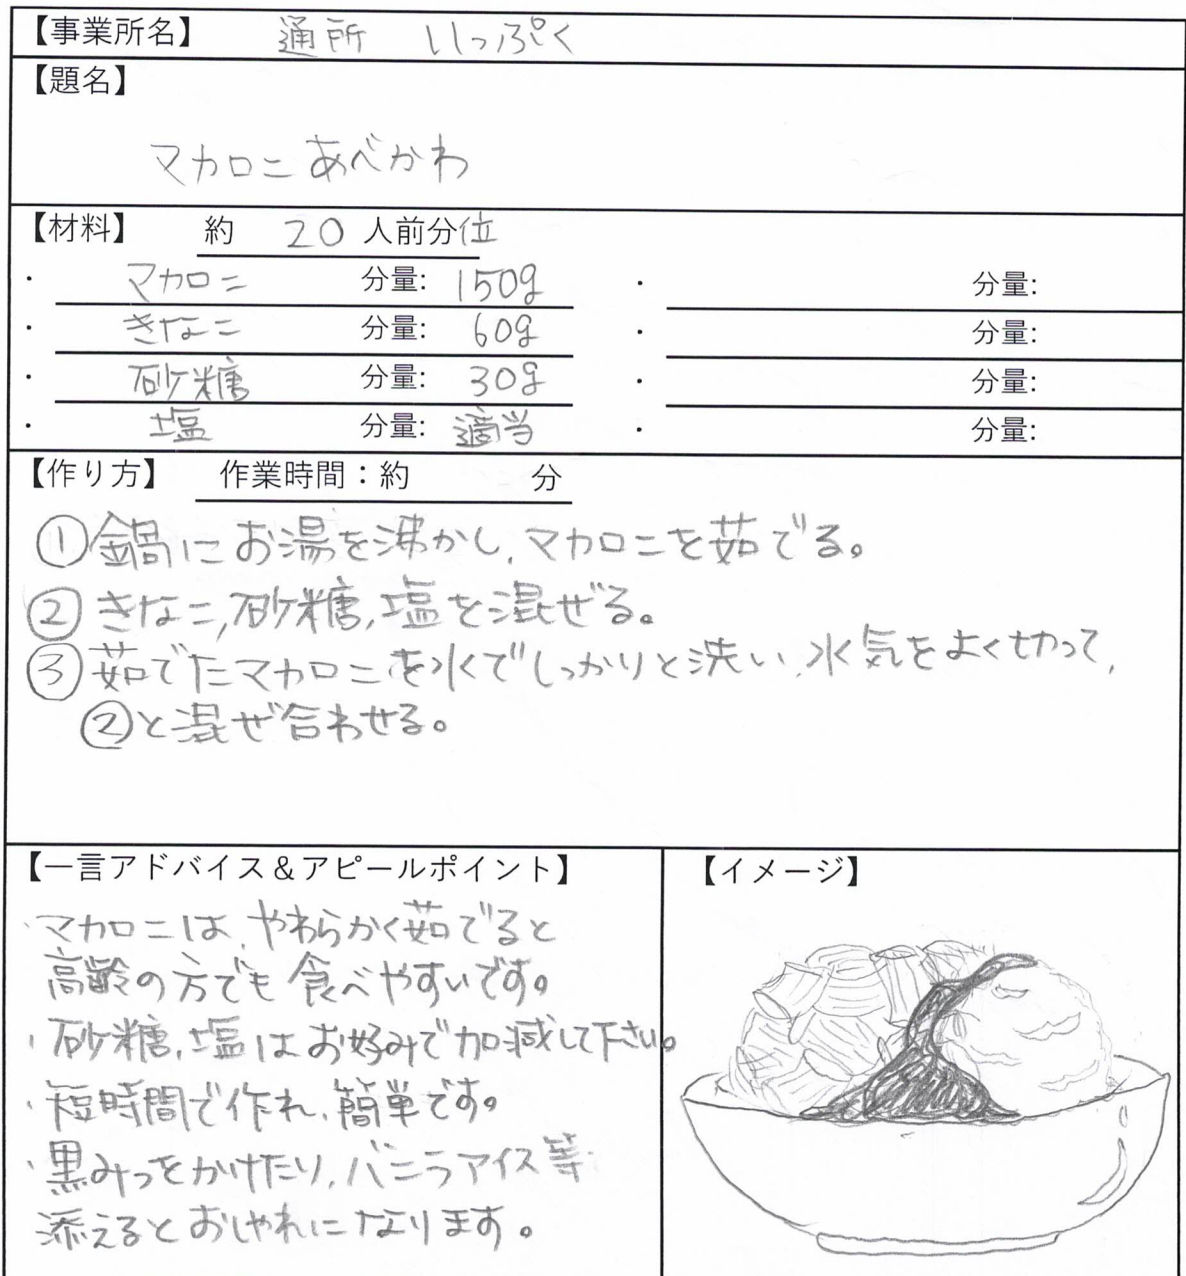 【事業所名】 通所 いっぷく
【題名】
マカロニあべかわ
【材料】 約 20 人前分位
・ マカロニ 分量: 150g ・ 分量:
・ きなこ 分量: 60g ・ 分量:
・ 砂糖 分量: 30g ・ 分量:
・ 塩 分量: 適当 ・ 分量:
【作り方】 作業時間：約 分
①鍋にお湯を沸かし、マカロニを茹でる。
②きなこ,砂糖,塩を混ぜる。
③茹でたマカロニを水でしっかりと洗い、水気をよく切って、
②と混ぜ合わせる。
【一言アドバイス＆アピールポイント】
・マカロニは、やわらかく茹でると
高齢の方でも食べやすいです。
・砂糖、塩はお好みで加減して下さい。
・短時間で作れ、簡単です。
・黒みつをかけたり、バニラアイス等
添えるとおしゃれになります。
【イメージ】